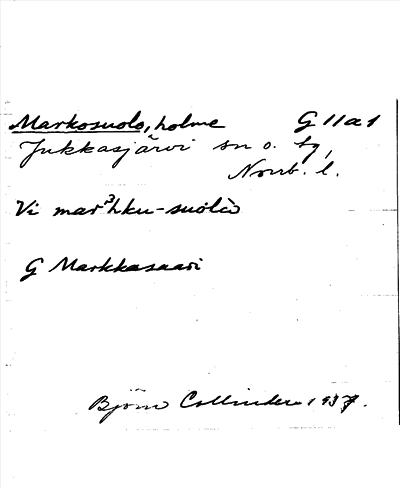 Markosuolo, holme G 11a1
Jukkasjärvi sn o. tg,
Norrb. l.
Vi marˀhku-suolò
G Markkasaari
Björn Collinder 1937.